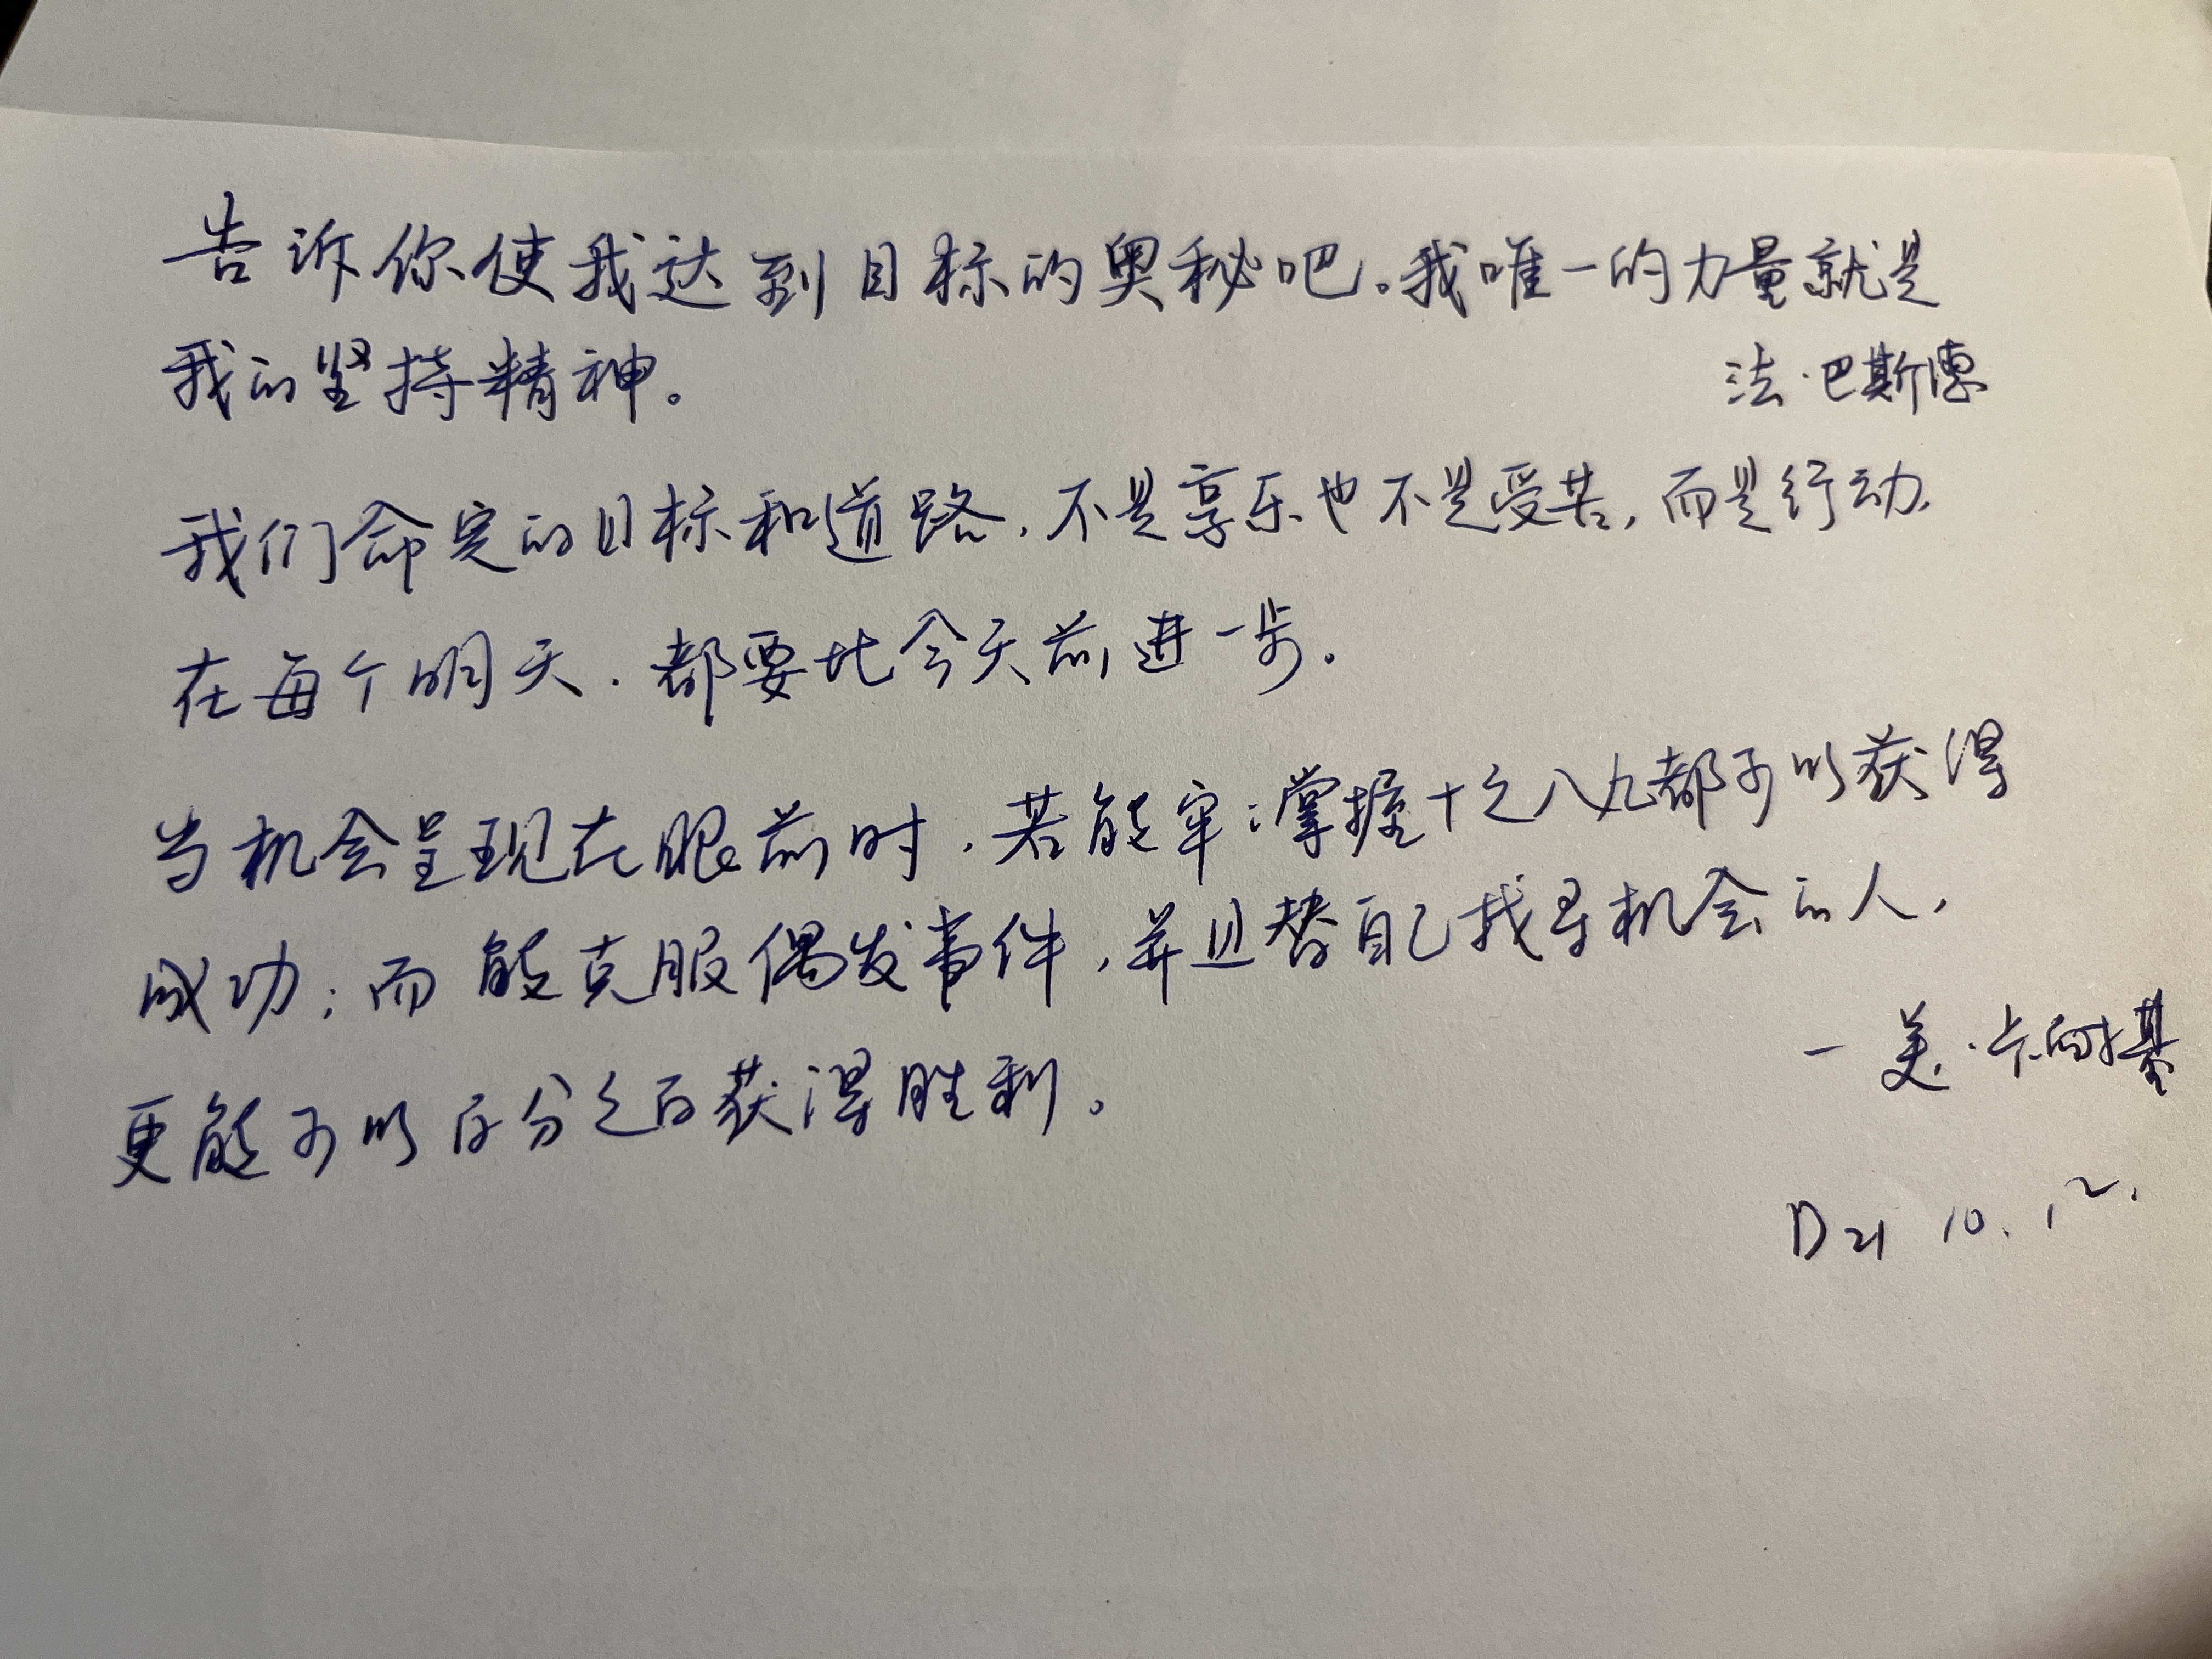 告诉你使我达到目标的奥秘吧。我唯一的力量就是
我的坚持精神。
法·巴斯德
我们命定的目标和道路,不是享乐也不是受苦,而是行动,
在每个明天,都要比今天前进一步。
当机会呈现在眼前时,若能牢:掌握十之八九都可以获得
成功;而能克服偶发事件,并且替自己找寻机会的人,
一美·卡耐基
更能可以百分之百获得胜利。
D21 10.12.